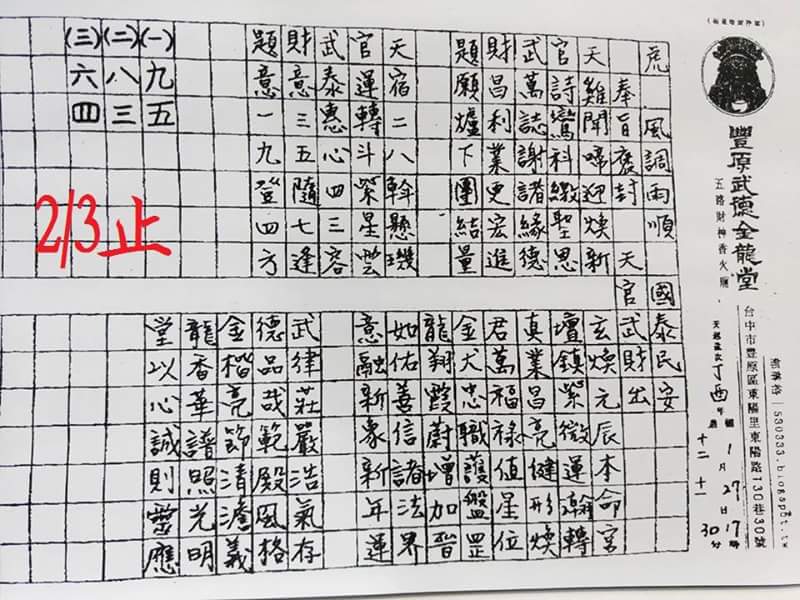 豐原武德金龍堂
五路財神香火廟
台中市豐原區東陽里東陽路130巷30號
530333.blogspot.tw
天運歲次丁酉年
1月27日17時
十二 十一 30分
虎 風調雨順 國泰民安
奉旨褒封 天官武財出
天雞聞啼迎煥新
官詩鸞科繳聖恩
武萬誌謝諸緣德
財昌利業更宏進
題願爐下團結量
玄煥元辰本命宮
壇鎮紫微運瀚轉
真業昌亮健形煥
君萬福祿值星位
金犬忠職護盤罡
龍翔霞蔚增加晉
如佑善信諸法界
意融新象新年運
天宿二八斡懸璣
官運轉斗榮星雲
武泰惠心四三容
財意三五隨七逢
題意一九登四方
武律莊嚴浩氣存
德品哉範殿風格
金楷亮節清澹義
龍香華譜照光明
堂以心誠則靈應
(一)九五
(二)八三
(三)六四
2/3止